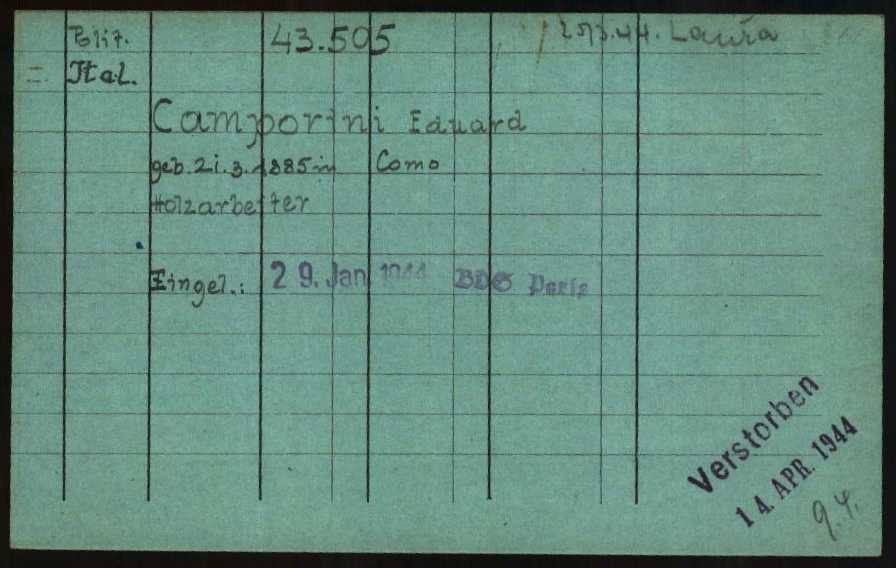 Polit. 43.505 25/3.44. Laura
Ital.
Camporini Eduard
geb. 21.3.1885 in Como
Holzarbeiter
Eingel.: 29. Jan. 1944 BDS Paris
Verstorben
14. APR. 1944
9.4.